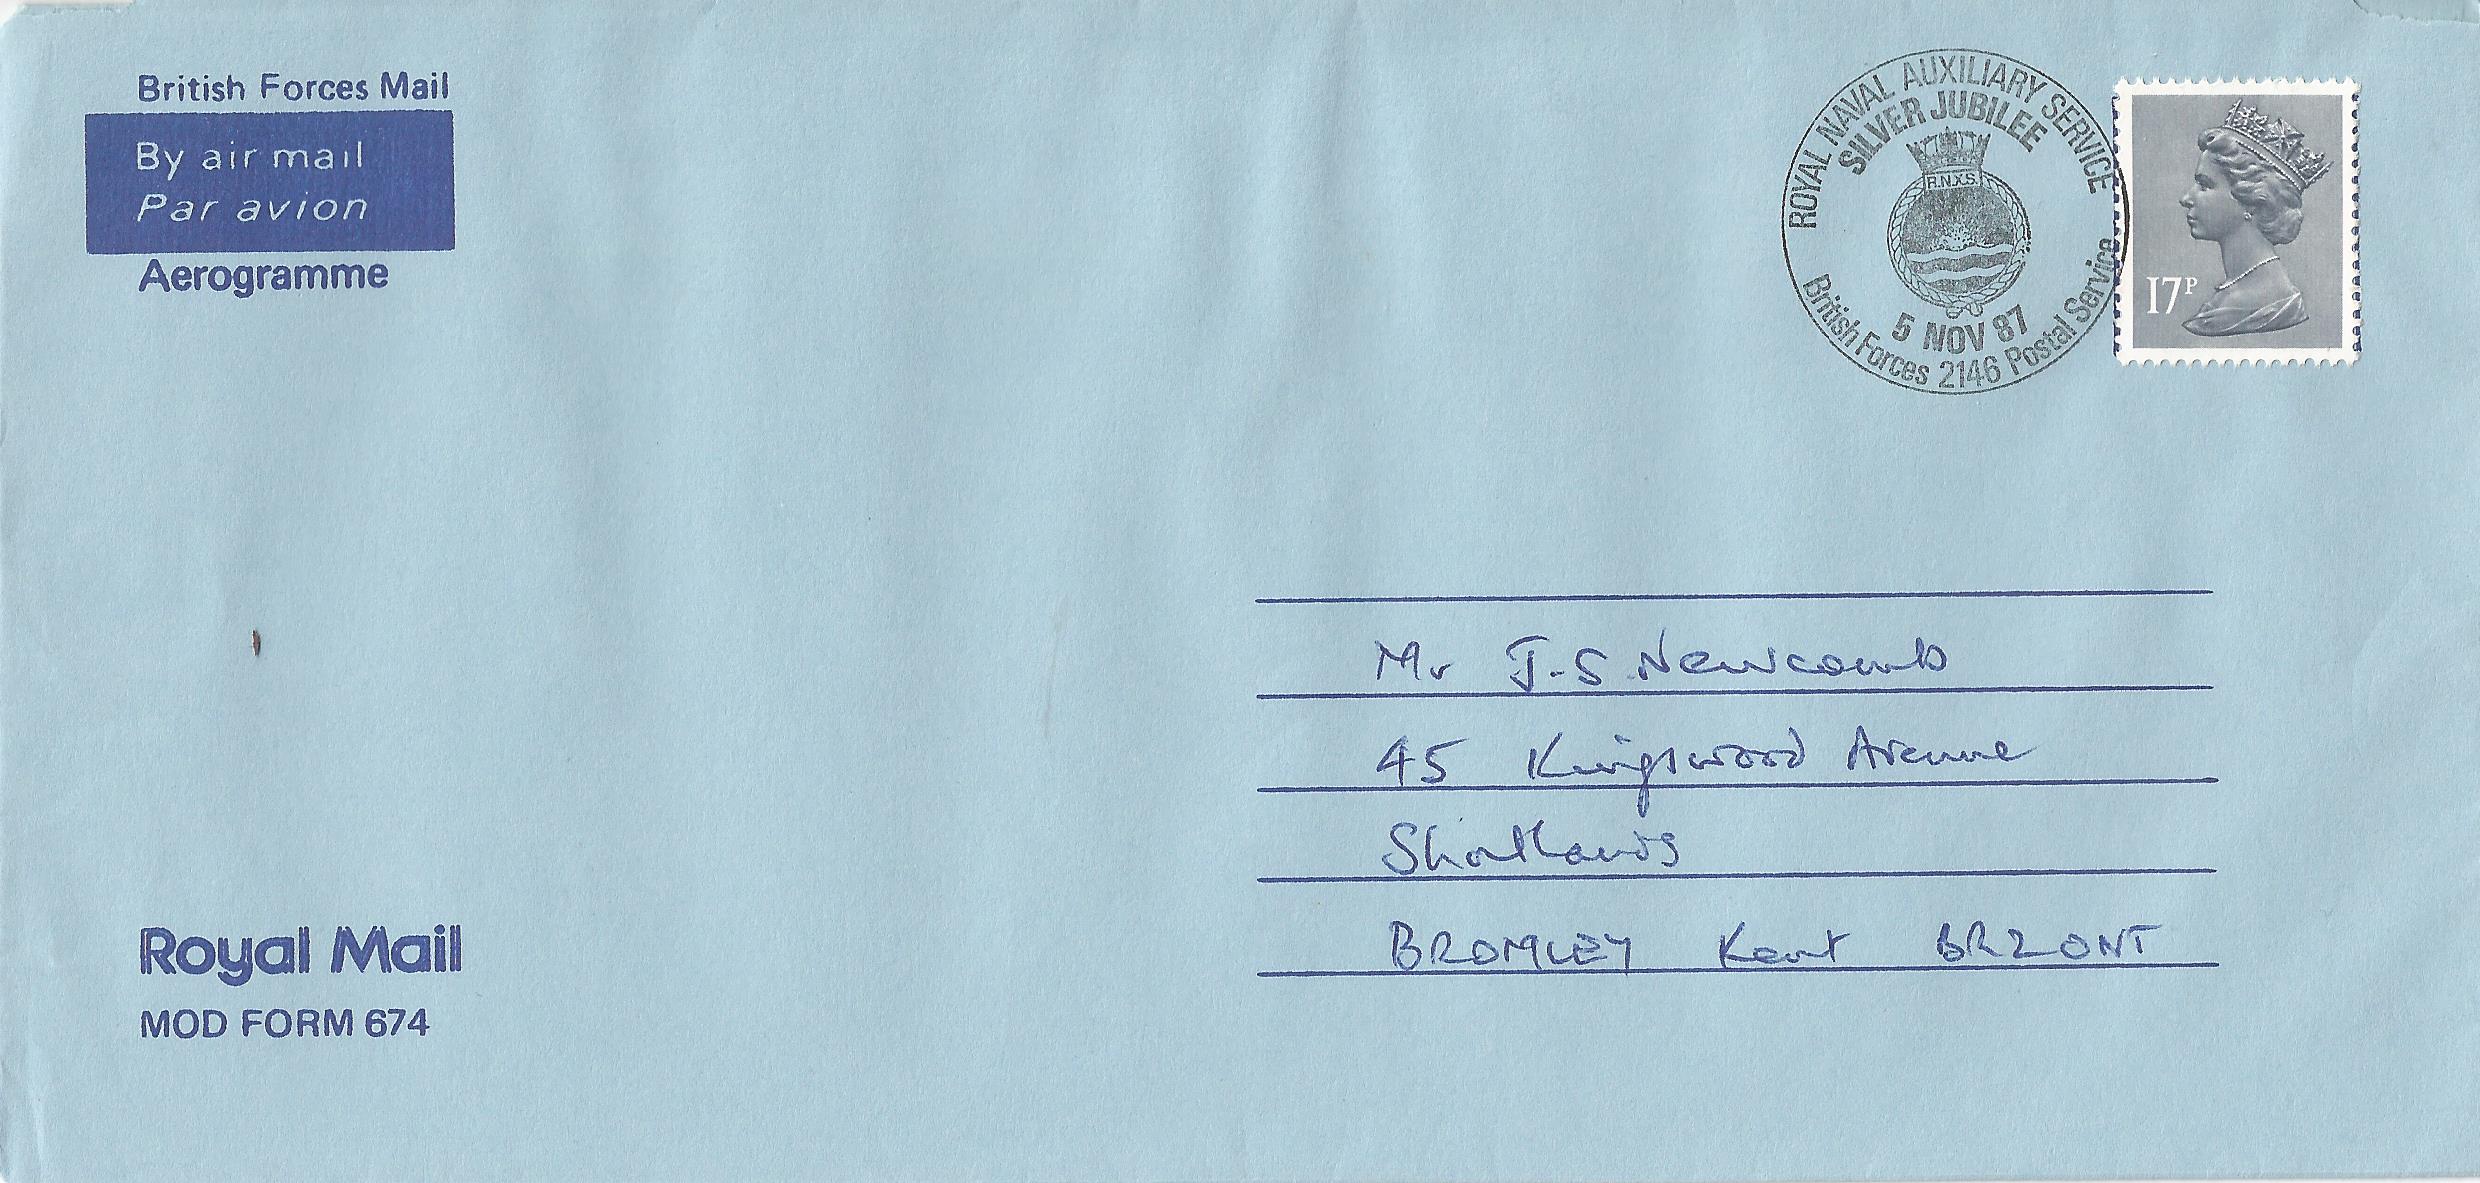 British Forces Mail
By air mail
Par avion
Aerogramme
ROYAL NAVAL AUXILIARY SERVICE
SILVER JUBILEE
R.N.X.S.
5 NOV 87
British Forces 2146 Postal Service
17P
Mr J.S. Newcomb
45 Kingswood Avenue
Shortlands
BROMLEY Kent BR2 0NT
Royal Mail
MOD FORM 674